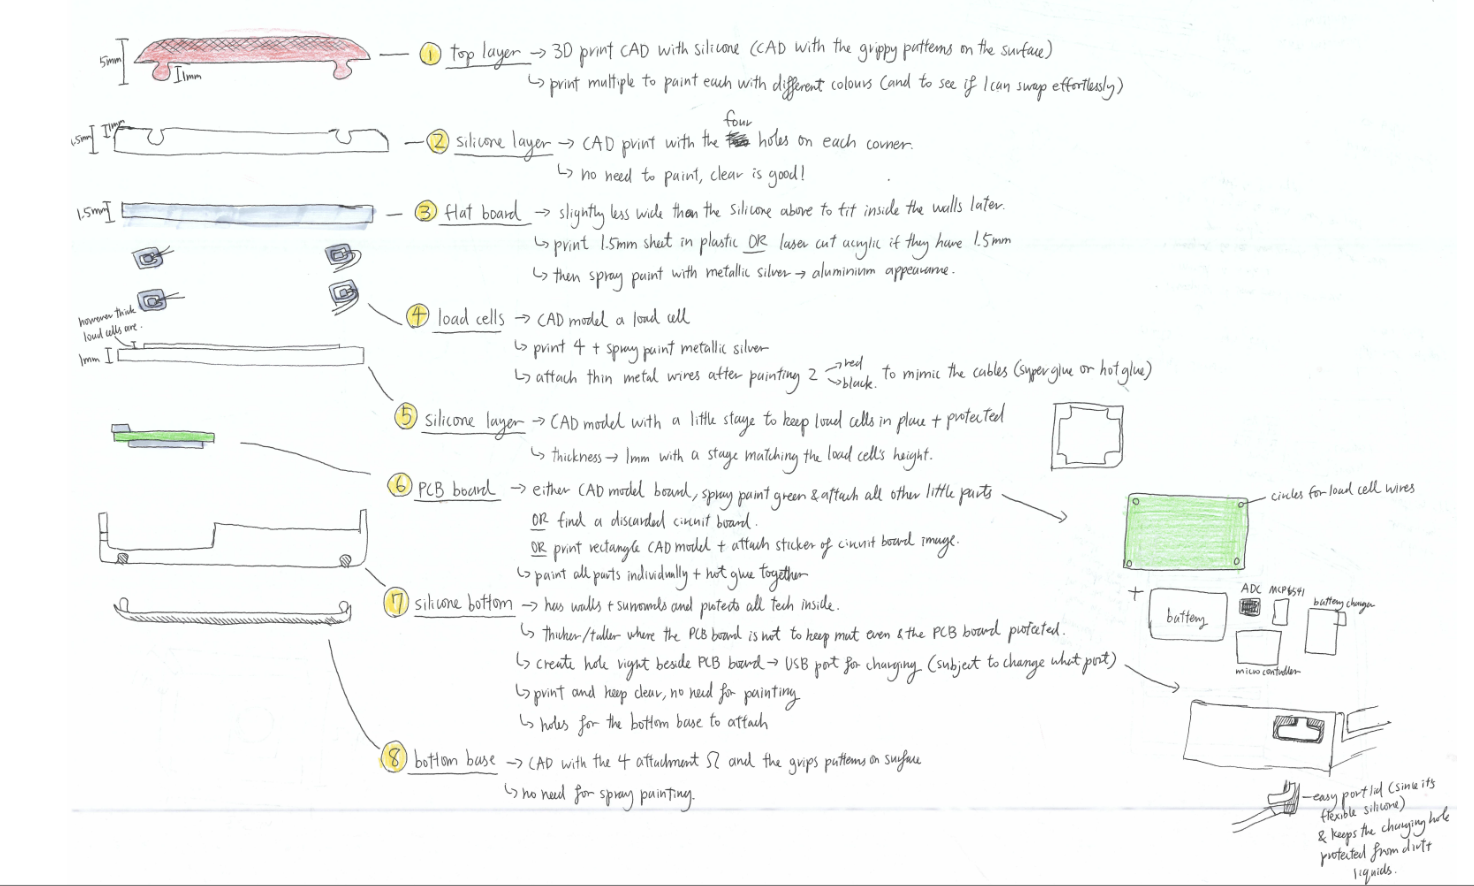 5mm
1mm
① top layer → 3D print CAD with silicone (CAD with the grippy patterns on the surface)
↳ print multiple to paint each with different colours (and to see if I can swap effortlessly)
.5mm
1mm
four
② silicone layer → CAD print with the holes on each corner.
↳ no need to paint, clear is good!
1.5mm
③ flat board → slightly less wide than the silicone above to fit inside the walls later.
↳ print 1.5mm sheet in plastic OR laser cut acrylic if they have 1.5mm
↳ then spray paint with metallic silver → aluminium appearance.
④ load cells → CAD model a load cell
↳ print 4 + spray paint metallic silver
↳ attach thin metal wires after painting 2 → red → black. to mimic the cables (super glue or hot glue)
however think
load cells are.
1mm
⑤ silicone layer → CAD model with a little stage to keep load cells in place + protected
↳ thickness → 1mm with a stage matching the load cell's height.
⑥ PCB board → either CAD model board, spray paint green & attach all other little parts
OR find a discarded circuit board.
OR print rectangle CAD model + attach sticker of circuit board image.
↳ paint all parts individually + hot glue together
circles for load cell wires
+
battery
ADC
MCP6541
battery charger
micro controller
⑦ silicone bottom → has walls + surrounds and protects all tech inside.
↳ thicker/taller where the PCB board is not to keep mat even & the PCB board protected.
↳ create hole right beside PCB board → USB port for charging (subject to change what port)
↳ print and keep clear, no need for painting
↳ holes for the bottom base to attach
⑧ bottom base → CAD with the 4 attachment Ω and the grips patterns on surface
↳ no need for spray painting.
easy port lid (since its
flexible silicone)
& keeps the charging hole
protected from dirt +
liquids.